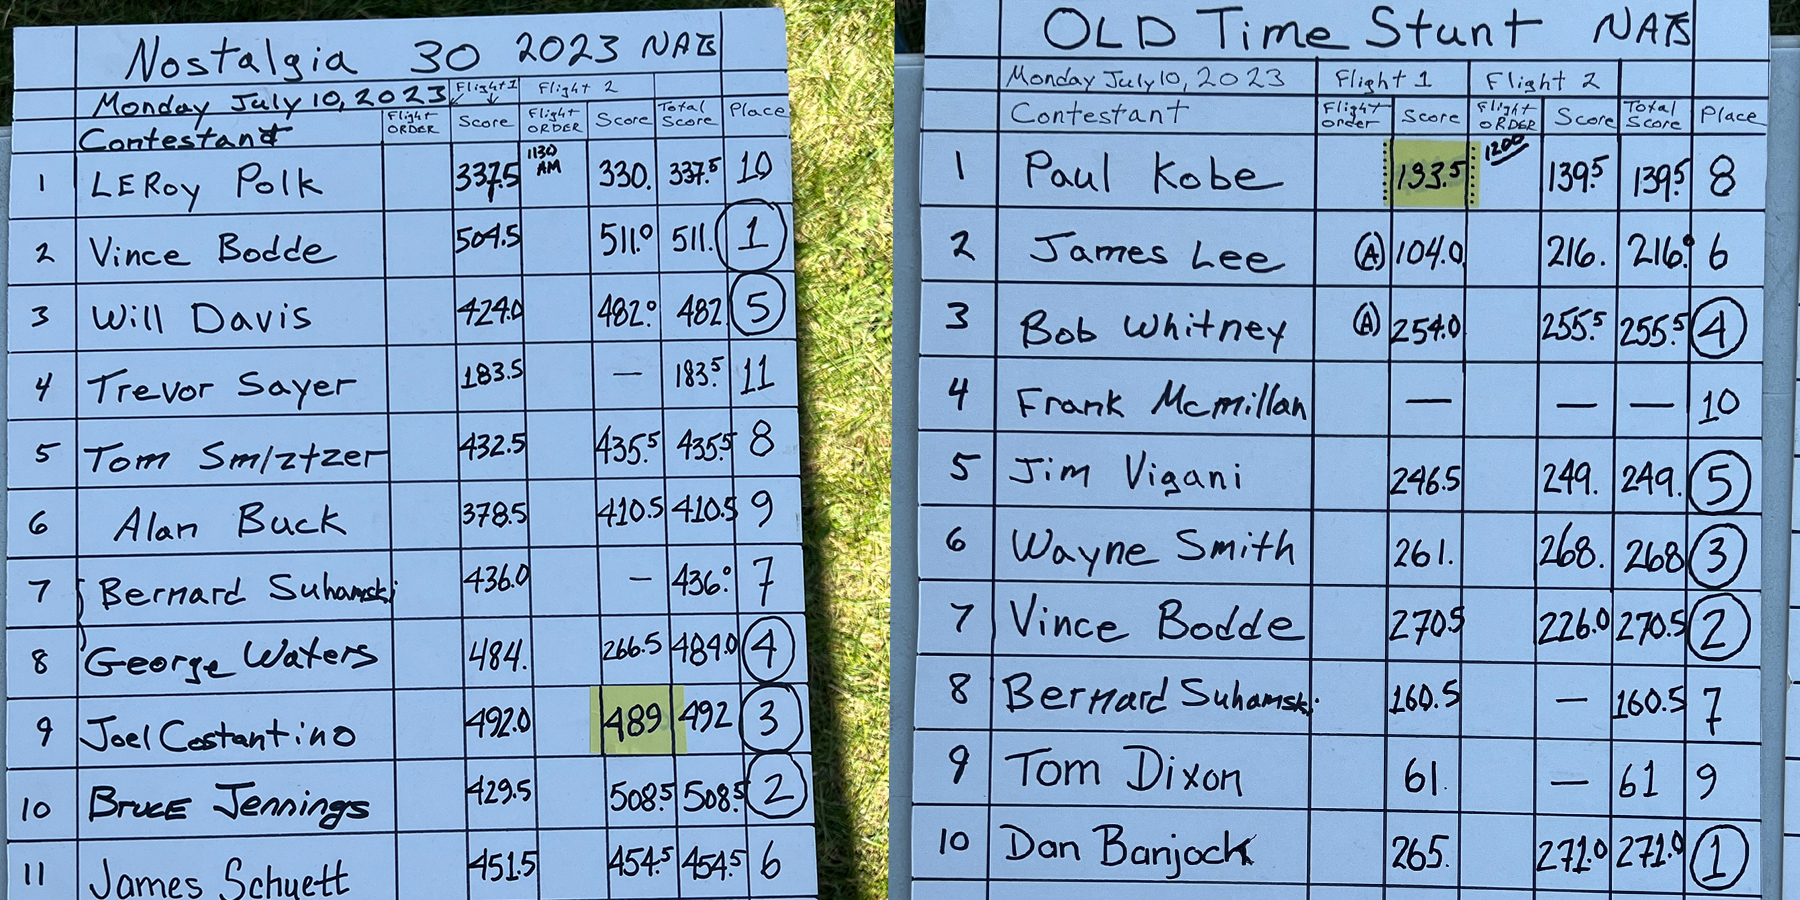 Nostalgia 30 2023 NATS
Monday July 10, 2023 Flight 1 Flight 2
Contestant Flight ORDER Score Flight ORDER Score Total Score Place
1 LERoy Polk 337.5 1130 AM 330. 337.5 10
2 Vince Bodde 504.5 511.0 511. 1
3 Will Davis 424.0 482.0 482 5
4 Trevor Sayer 183.5 — 183.5 11
5 Tom Smlztzer 432.5 435.5 435.5 8
6 Alan Buck 378.5 410.5 410.5 9
7 Bernard Suhamski 436.0 — 436.0 7
8 George Waters 484. 266.5 484.0 4
9 Joel Costantino 492.0 489 492 3
10 BRUCE Jennings 429.5 508.5 508.5 2
11 James Schuett 451.5 454.5 454.5 6
OLD Time Stunt NATS
Monday July 10, 2023 Flight 1 Flight 2
Contestant Flight order Score Flight ORDER Score Total Score Place
1 Paul Kobe 133.5 1200 139.5 139.5 8
2 James Lee (A) 104.0 216. 216.0 6
3 Bob Whitney (A) 254.0 255.5 255.5 4
4 Frank Mcmillan — — — 10
5 Jim Vigani 246.5 249. 249. 5
6 Wayne Smith 261. 268. 268 3
7 Vince Bodde 270.5 226.0 270.5 2
8 Bernard Suhamski 160.5 — 160.5 7
9 Tom Dixon 61. — 61 9
10 Dan Banjock 265. 271.0 271.0 1